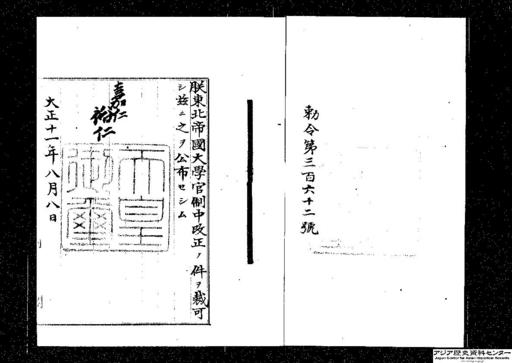 勅令第三百六十二號
朕東北帝國大學官制中改正ノ件ヲ裁可
シ玆ニ之ヲ公布セシム
嘉仁
裕仁
天皇
御璽
大正十一年八月八日
アジア歴史資料センター
Japan Center for Asian Historical Records